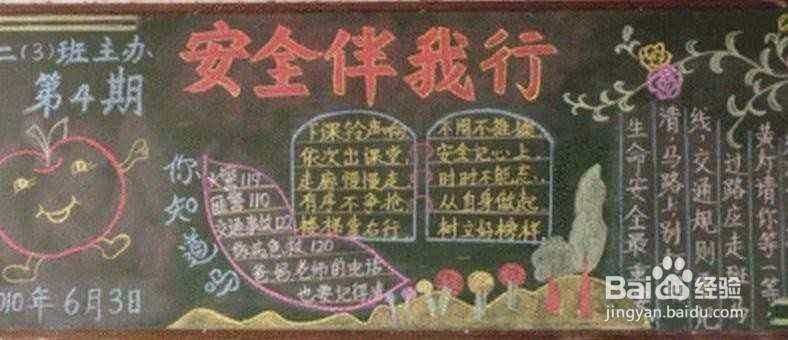 二(3)班主办
第4期
安全伴我行
你知道吗
火警119
匪警110
交通事故122
急救120
爸妈老师的电话
也要记得清
下课铃声响
依次出课堂
走廊慢慢走
有序不争抢
楼梯靠右行
不闹不推搡
安全记心上
时时不能忘
从自身做起
树立好榜样
黄灯请你等一等
过路应走斑马
线,交通规则
清,马路上别
生命安全最重
2010年6月3日
Baidu经验
jingyan.baidu.com